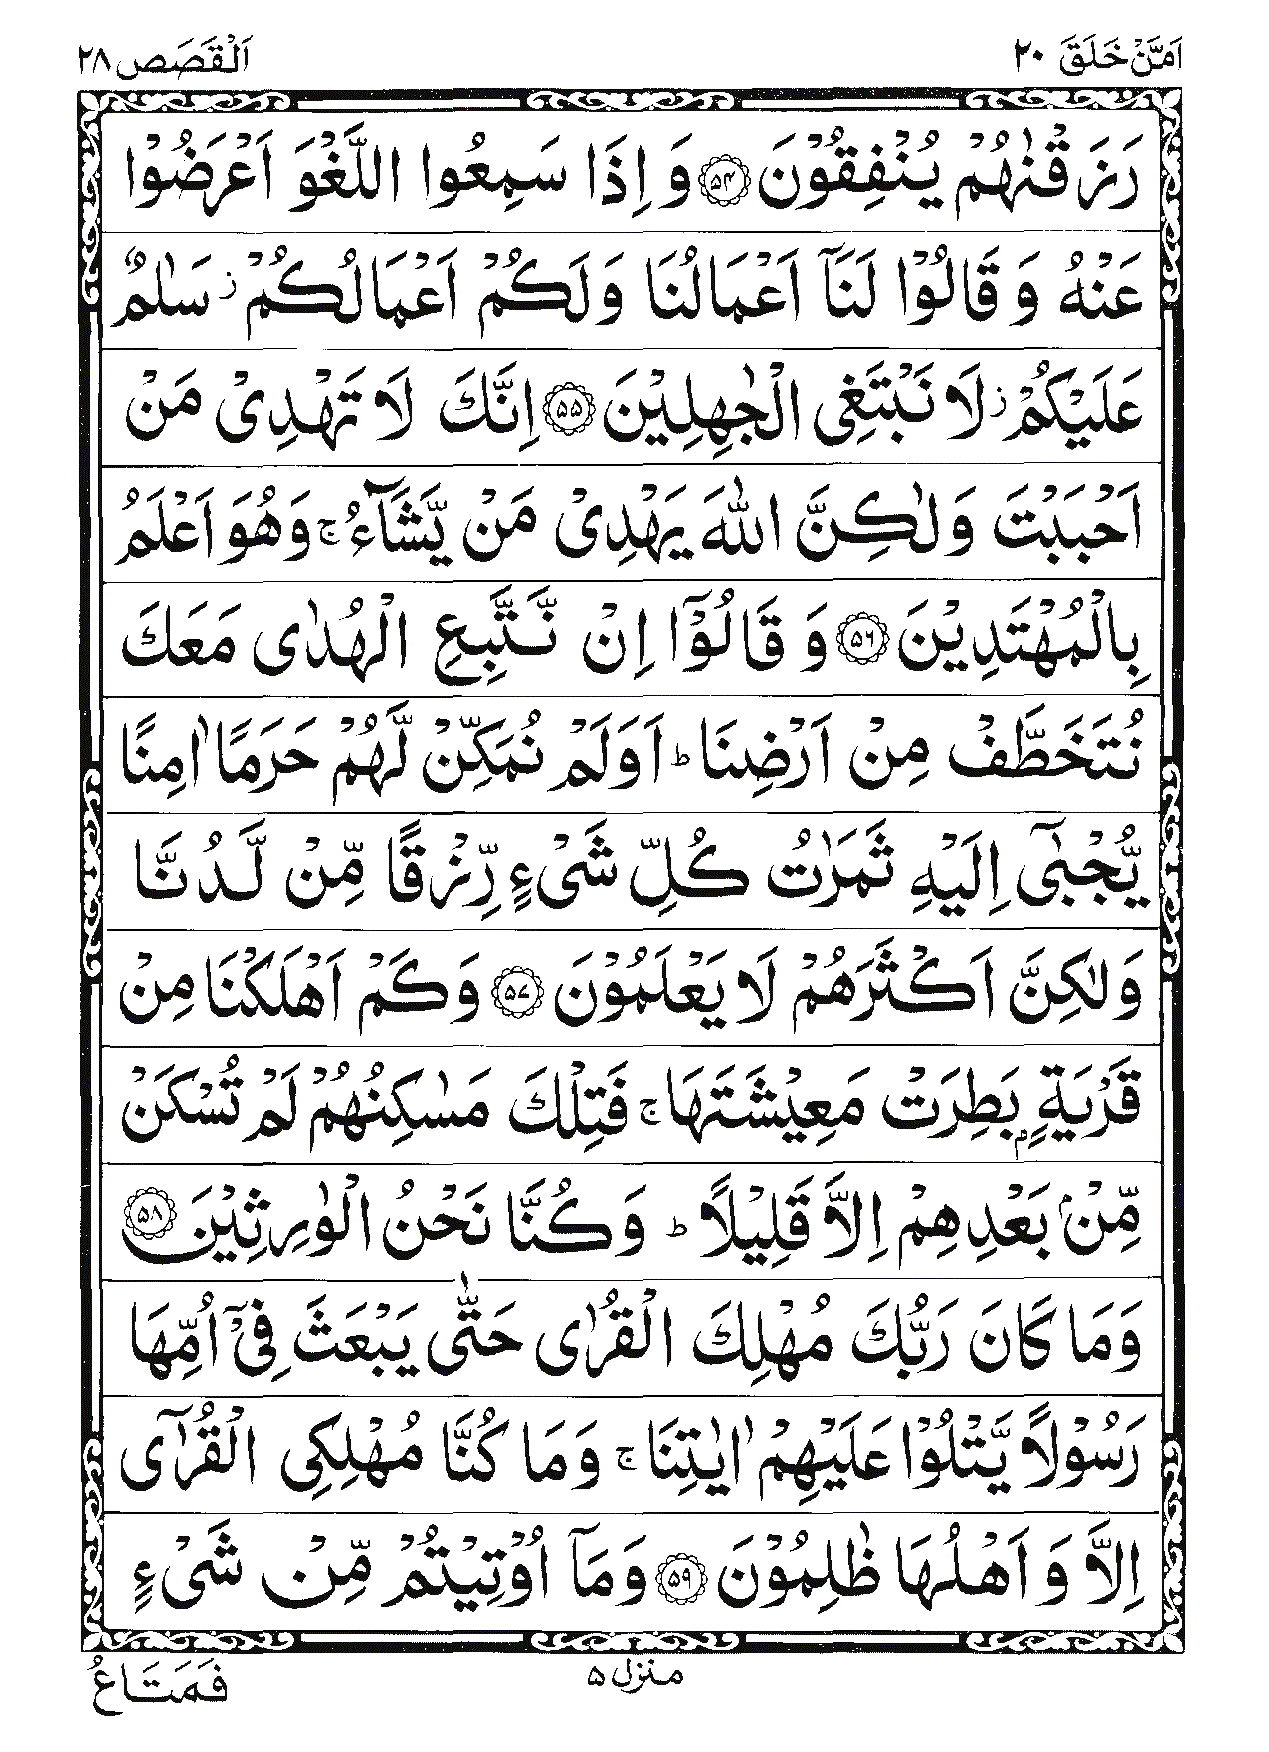 اَمَّنْ خَلَقَ ٢٠
اَلْقَصَص ٢٨
رَزَقْنٰهُمْ يُنْفِقُوْنَ ﴿۵۴﴾ وَ اِذَا سَمِعُوا اللَّغْوَ اَعْرَضُوْا
عَنْهُ وَ قَالُوْا لَنَاۤ اَعْمَالُنَا وَلَكُمْ اَعْمَالُكُمْ ز سَلٰمٌ
عَلَيْكُمْ ز لَا نَبْتَغِى الْجٰهِلِيْنَ ﴿۵۵﴾ اِنَّكَ لَا تَهْدِىْ مَنْ
اَحْبَبْتَ وَلٰكِنَّ اللّٰهَ يَهْدِىْ مَنْ يَّشَآءُ ج وَهُوَ اَعْلَمُ
بِالْمُهْتَدِيْنَ ﴿۵۶﴾ وَ قَالُوْۤا اِنْ نَّتَّبِعِ الْهُدٰى مَعَكَ
نُتَخَطَّفْ مِنْ اَرْضِنَا ط اَوَلَمْ نُمَكِّنْ لَّهُمْ حَرَمًا اٰمِنًا
يُّجْبٰٓى اِلَيْهِ ثَمَرٰتُ كُلِّ شَىْءٍ رِّزْقًا مِّنْ لَّدُنَّا
وَلٰكِنَّ اَكْثَرَهُمْ لَا يَعْلَمُوْنَ ﴿۵۷﴾ وَكَمْ اَهْلَكْنَا مِنْ
قَرْيَةٍۭ بَطِرَتْ مَعِيْشَتَهَا ج فَتِلْكَ مَسٰكِنُهُمْ لَمْ تُسْكَنْ
مِّنْۢ بَعْدِهِمْ اِلَّا قَلِيْلًا ط وَكُنَّا نَحْنُ الْوٰرِثِيْنَ ﴿۵۸﴾
وَمَا كَانَ رَبُّكَ مُهْلِكَ الْقُرٰى حَتّٰى يَبْعَثَ فِىْۤ اُمِّهَا
رَسُوْلًا يَّتْلُوْا عَلَيْهِمْ اٰيٰتِنَا ج وَمَا كُنَّا مُهْلِكِى الْقُرٰٓى
اِلَّا وَ اَهْلُهَا ظٰلِمُوْنَ ﴿۵۹﴾ وَمَاۤ اُوْتِيْتُمْ مِّنْ شَىْءٍ
منزل ۵
فَمَتَاعُ